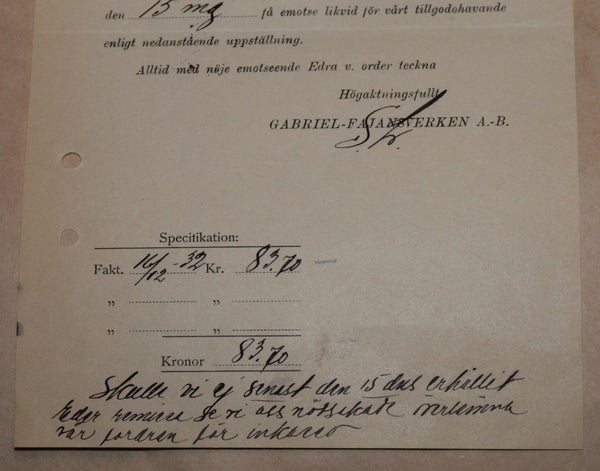 den 15 maj få emotse likvid för vårt tillgodohavande
enligt nedanstående uppställning.
Alltid med nöje emotseende Edra v. order teckna
Högaktningsfullt
GABRIEL-FAJANSVERKEN A.-B.
Specifikation:
Fakt. 16/12 -32 Kr. 83.70
„ „
„ „
Kronor 83.70
Skulle vi ej senast den 15 ds erhållit
Eder remissa se vi oss nödsakade överlämna
vår fordran för inkasso